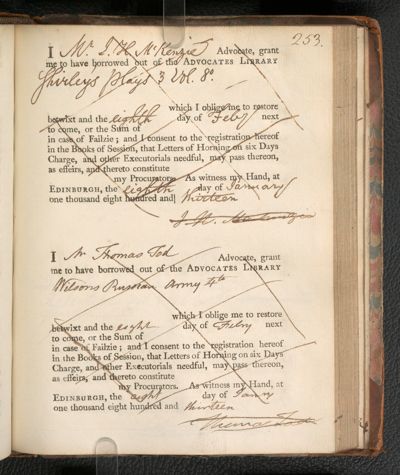 253.
I Mr. J. H. McKenzie Advocate, grant
me to have borrowed out of the ADVOCATES LIBRARY
Shirleys Plays 3 Vol. 8o.
which I oblige me to restore
betwixt and the eighth day of Feby next
to come, or the Sum of
in case of Failzie; and I consent to the registration hereof
in the Books of Session, that Letters of Horning on six Days
Charge, and other Executorials needful, may pass thereon,
as effeirs, and thereto constitute
my Procurators. As witness my Hand, at
EDINBURGH, the eighth day of January
one thousand eight hundred and thirteen
J. H. Mackenzie
I Mr Thomas Tod Advocate, grant
me to have borrowed out of the ADVOCATES LIBRARY
Wilsons Russian Army 4to
which I oblige me to restore
betwixt and the eight day of Feby next
to come, or the Sum of
in case of Failzie; and I consent to the registration hereof
in the Books of Session, that Letters of Horning on six Days
Charge, and other Executorials needful, may pass thereon,
as effeirs, and thereto constitute
my Procurators. As witness my Hand, at
EDINBURGH, the eight day of Janry
one thousand eight hundred and thirteen
Thomas Tod